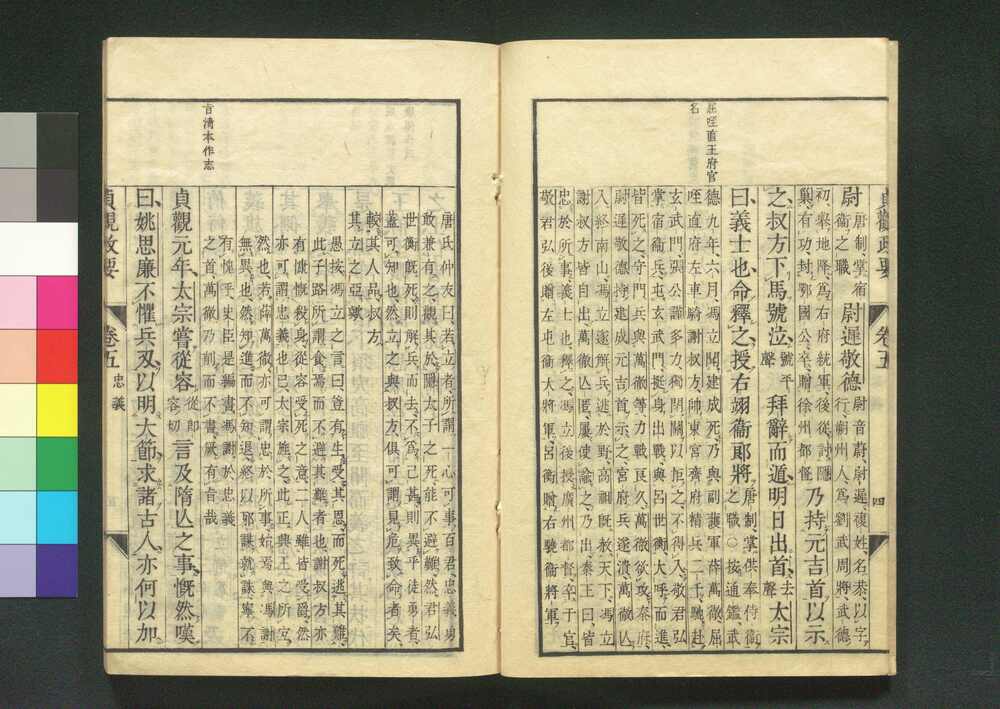 屈咥直王府官
名
貞觀政要 卷五 四
尉唐制掌宿衛之職尉遲敬德尉音蔚尉遲複姓名恭以字行蔚州人為劉武周將武德
初舉地降為右府統軍後從討隱巢有功封鄂國公卒贈徐州都督乃持元吉首以示
之叔方下馬號泣號平聲拜辭而遁明日出首去聲太宗
曰義士也命釋之授右翊衞郎將唐制掌供奉侍衞之職○按通鑑武
德九年六月馮立聞建成死乃與副護軍薛萬徹屈
咥直府左車騎謝叔方帥東宮齊府精兵二千馳赴
玄武門張公謹多力獨閉關以拒之不得入敬君弘
掌宿衞兵屯玄武門挺身出戰與呂世衡大呼而進
皆死之守門兵與萬徹等力戰良久萬徹欲攻秦府
尉遲敬德持建成元吉首示之宮府兵遂潰萬徹亾
入終南山馮立遂解兵逃於野高祖既赦天下馮立
謝叔方皆自出萬徹亾匿屢使諭之乃出秦王曰皆
忠於所事義士也釋之馮立後授廣州都督卒于官
敬君弘後贈左屯衞大將軍呂衡贈右驍衞將軍
唐氏仲友曰若立者所謂一心可事百君忠義勇
敢兼有之觀其於隱太子之死能不避難然君弘
世衡既死則解兵而去不為已甚則異乎徒勇者
蓋可知也然立之與叔方俱可謂見危致命者矣
較其人品叔方
其立之亞歟
愚按馮立之言曰豈有生受其恩而死逃其難
此子路所謂食焉而不避其難者也謝叔方亦
有慷慨殺身從容受死之意二人雖皆受爵然
亦可謂忠義也已太宗旌之此正興王之所宜
然也若薛萬徹亦可謂忠於所事始焉與馮謝
無異也然知進而不知退終以耶謀就誅寧不
有愧乎史臣是編書馮謝於忠義
之首萬徹乃削而不書厥有旨哉
旨清本作志
貞觀元年太宗嘗從容從即容切言及隋亾之事慨然嘆
曰姚思廉不懼兵刃以明大節求諸古人亦何以加
貞觀政要 卷五 忠義